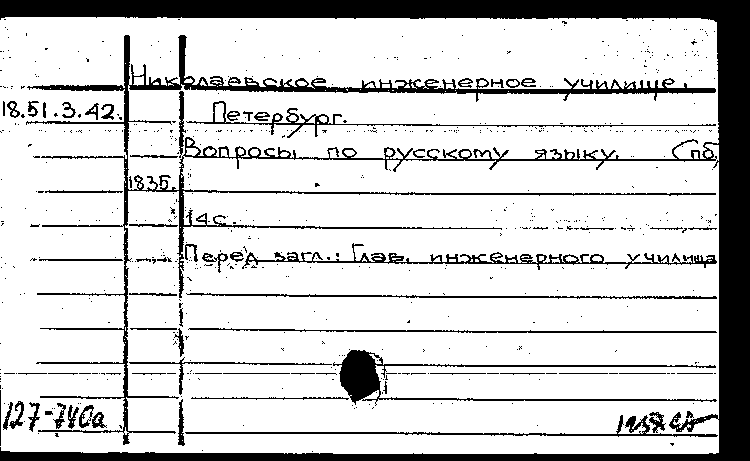 Николаевское инженерное училище.
18.51.3.42. Петербург.
Вопросы по русскому языку. (Пб,
1835.
14 с.
Перед загл.: Глав. инженерного училища
127-740а